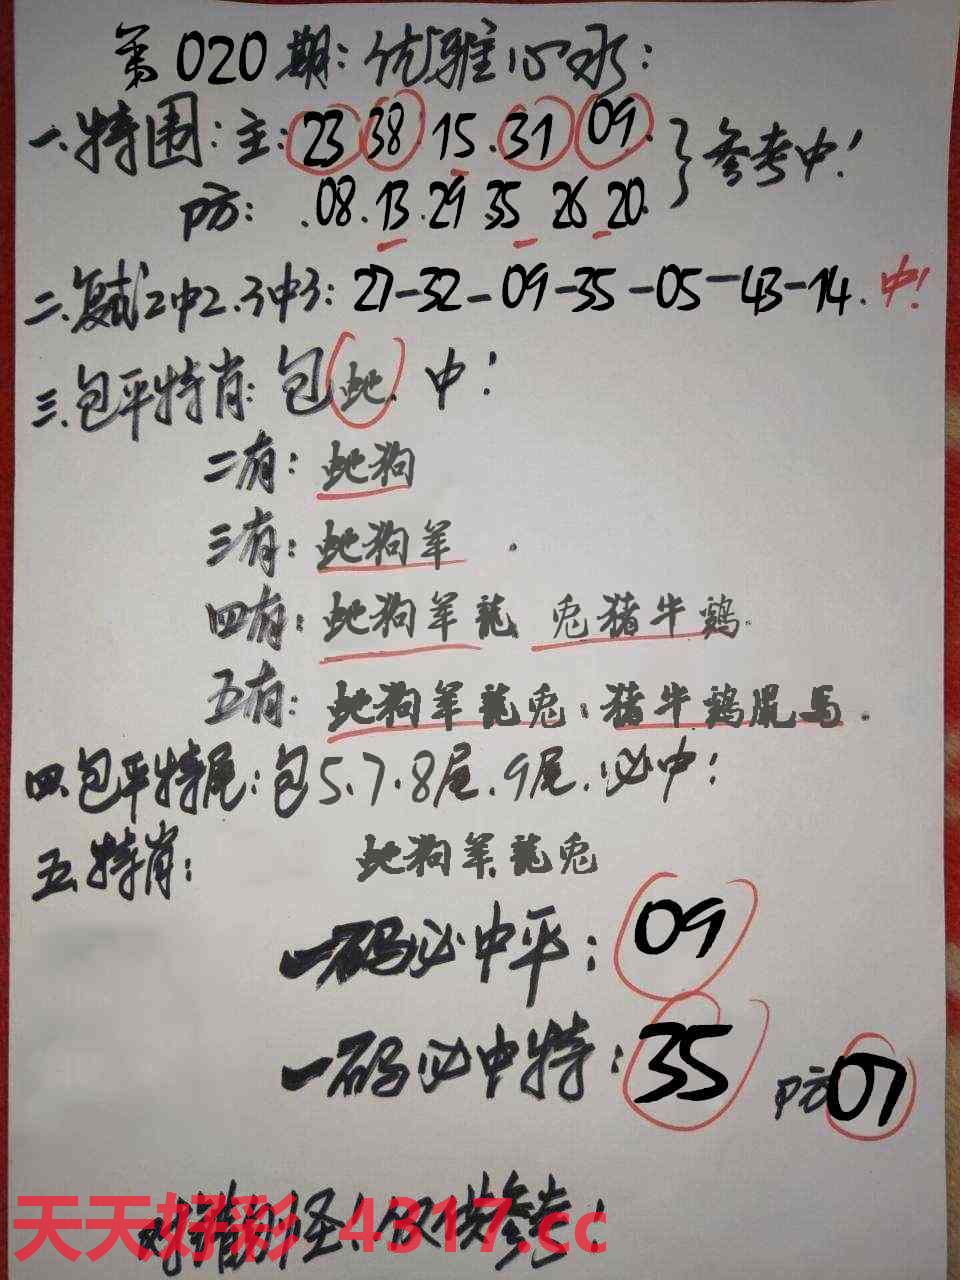 第020期:优雅心水:
一.特围:主:23 38.15.31 09.}参考中!
防:.08.13.29.35 26 20.
二.复试2中2.3中3:27-32-09-35-05-43-14.中!
三.包平特肖:包蛇.中!
二有:蛇狗
三有:蛇狗羊.
四有:蛇狗羊龍 兔猪牛鷄.
五有:蛇狗羊龍兔:猪牛鷄鼠馬.
四.包平特尾:包5.7.8尾.9尾.必中!
五.特肖:蛇狗羊.龍兔
一码必中平:09
一码必中特:35 防07
对错勿怪!仅供参考!
天天好彩 4317.cc